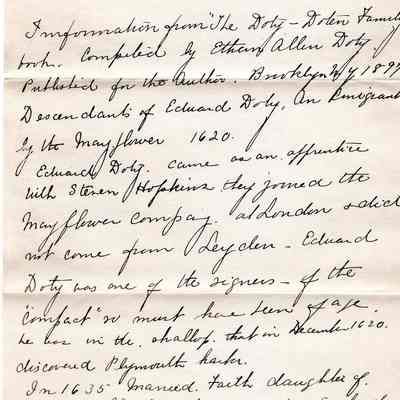 Imformation from "The Doty - Doten Family
book. Compiled by Ethan Allen Doty
Published for the Author. Brooklyn N.Y. 1897
Descendants of Edward Doty, an Emigrant
by the Mayflower 1620.
Edward Doty. came as an apprentice
with Steven Hopkins they joined the
Mayflower company. at London & did
not come from Leyden - Edward
Doty was one of the signers - of the
"compact" so must have been of age.
he was in the. shallop. that in December 1620.
discovered Plymouth harbor.
In 1635 Married. Faith daughter of.